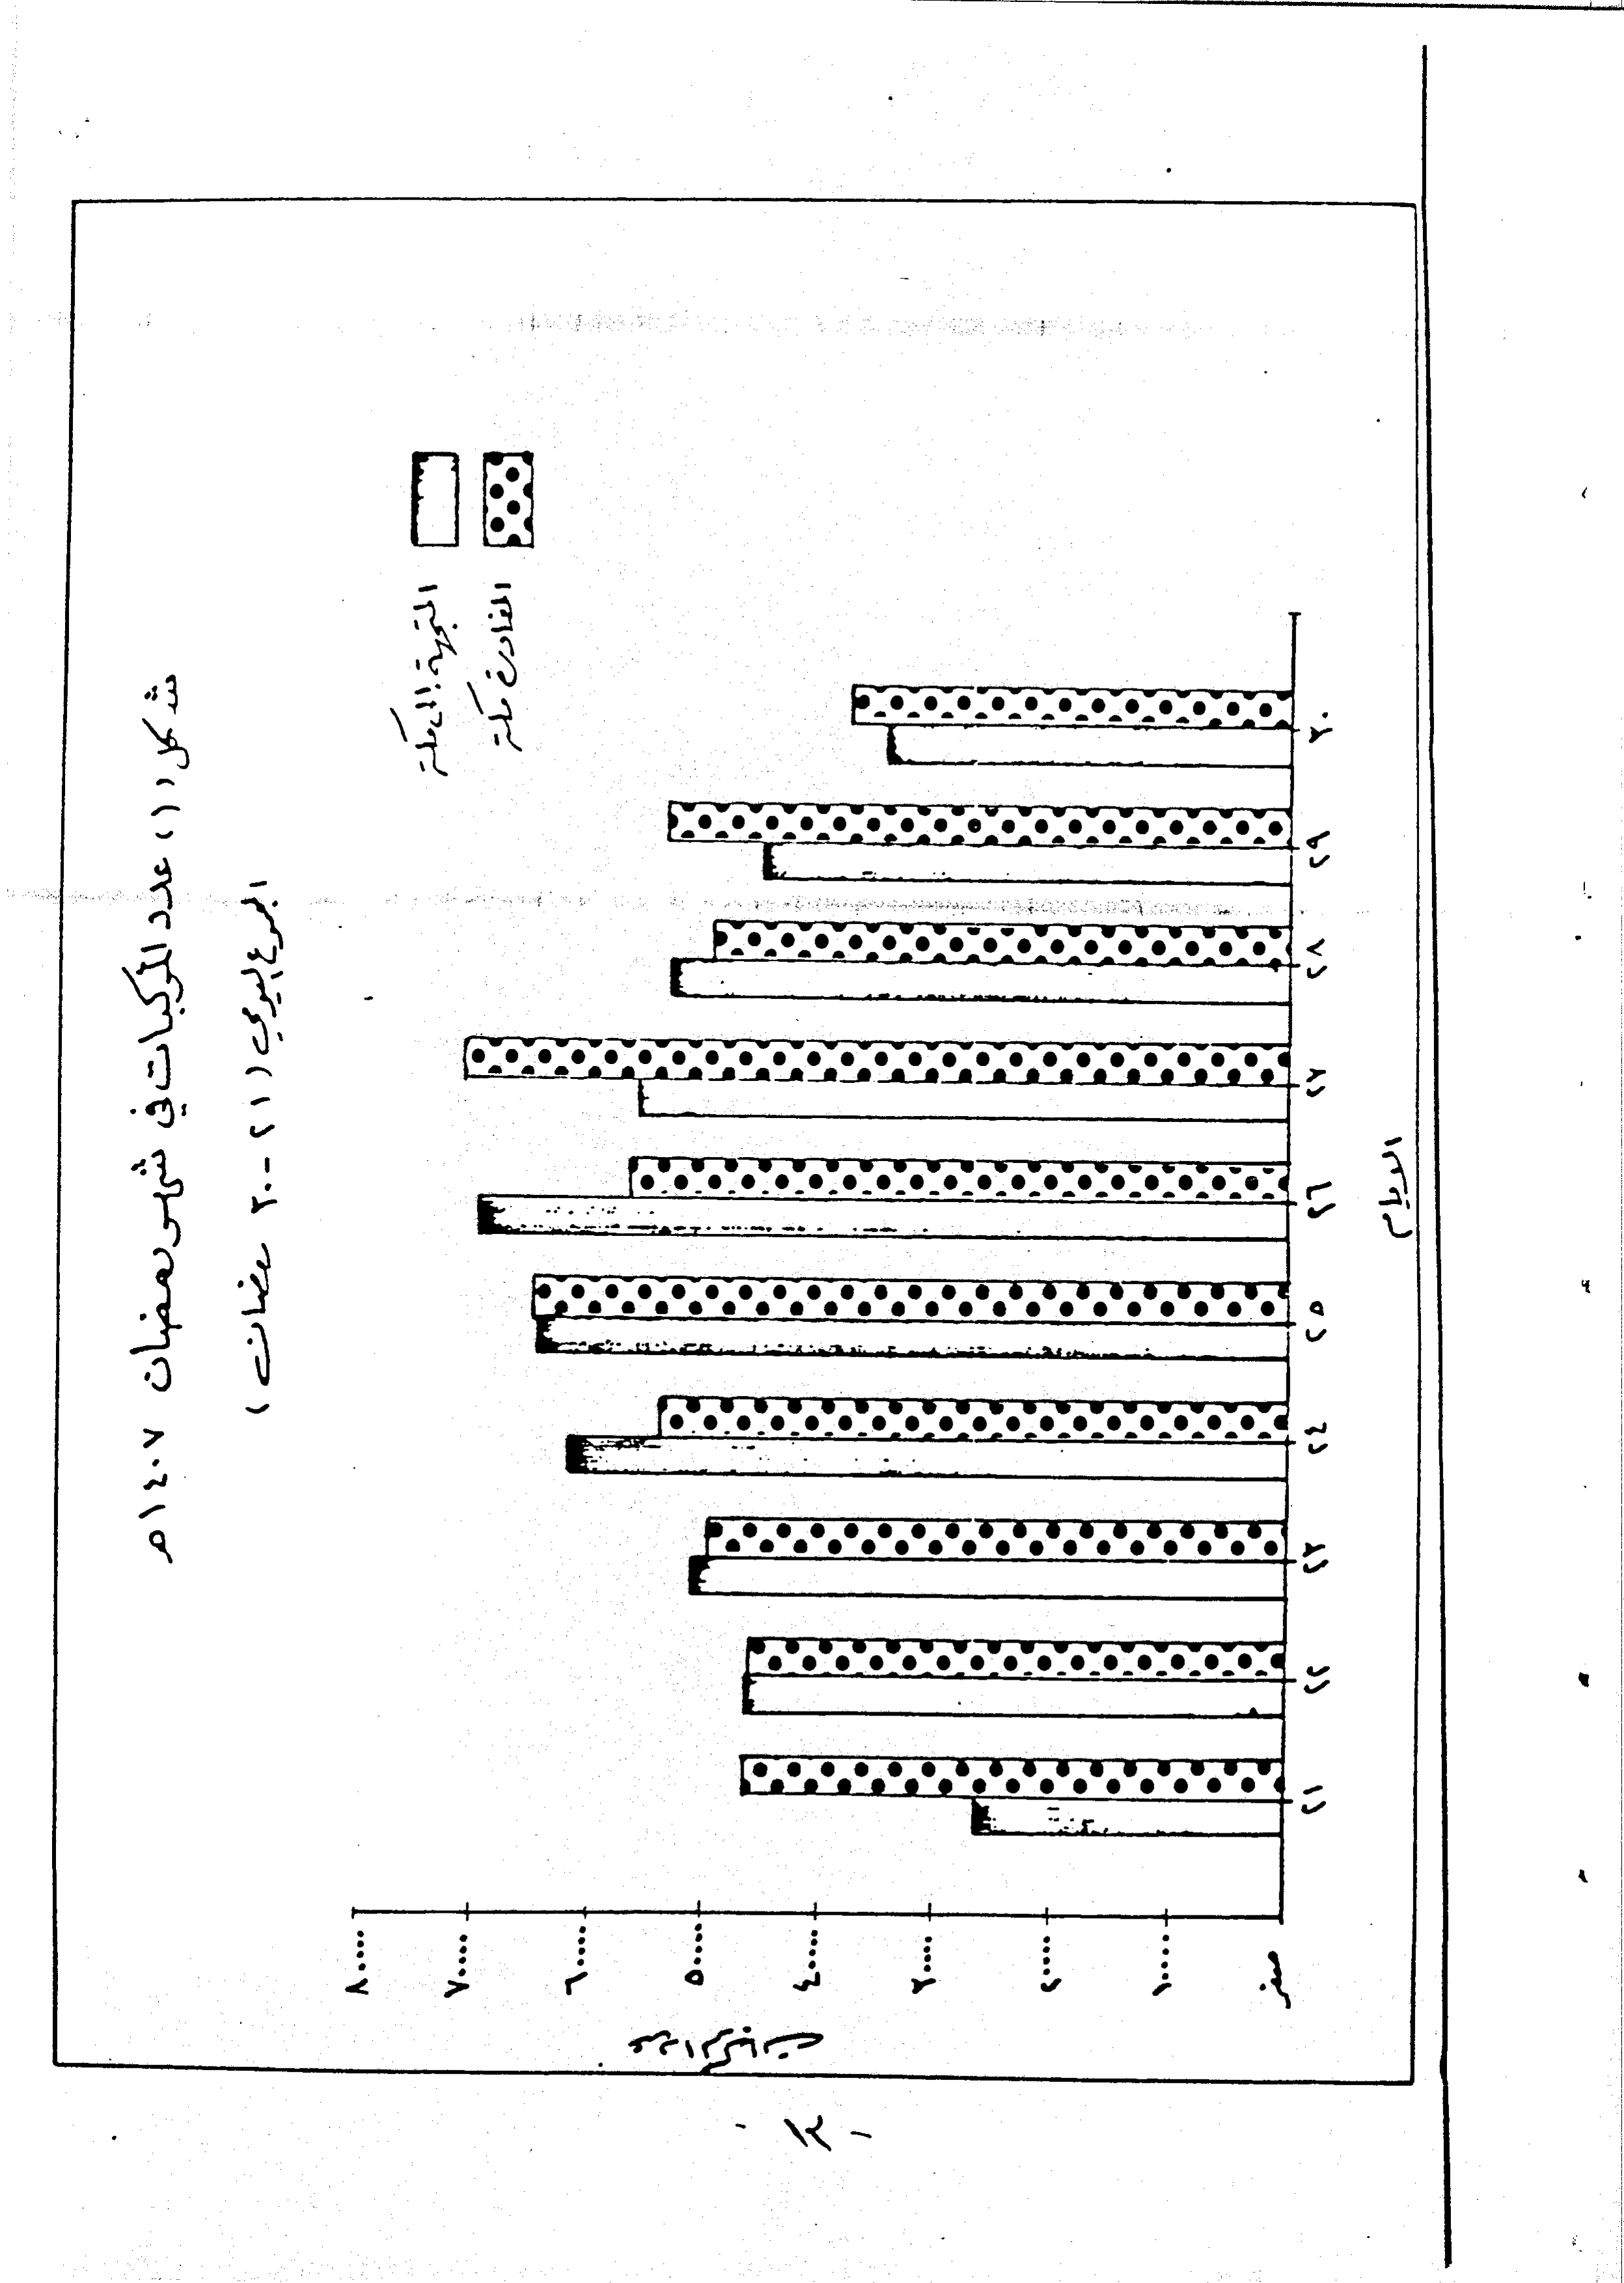 شكل (١) عدد المركبات في شهر رمضان ١٤٠٧هـ
المجموع اليومي (٢١ - ٣٠ رمضان)
المتجهة إلى مكة
المغادرة مكة
٨٠٠٠٠
٧٠٠٠٠
٦٠٠٠٠
٥٠٠٠٠
٤٠٠٠٠
٣٠٠٠٠
٢٠٠٠٠
١٠٠٠٠
صفر
عدد المركبات
٢١ ٢٢ ٢٣ ٢٤ ٢٥ ٢٦ ٢٧ ٢٨ ٢٩ ٣٠
الايام
- ١٣ -